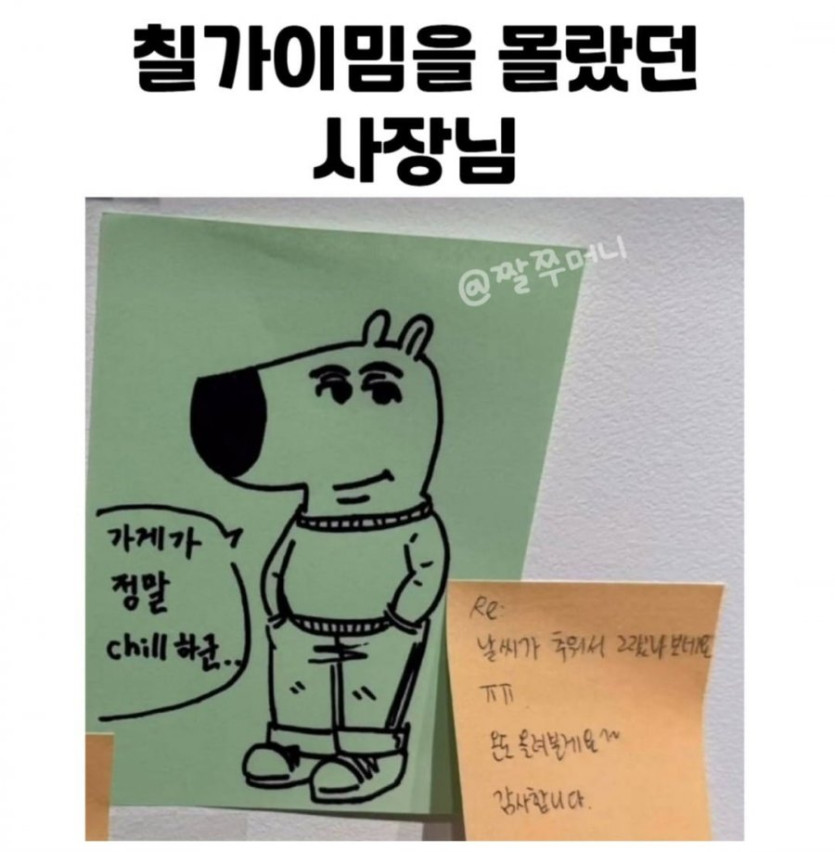 칠가이밈을 몰랐던
사장님
@짤쭈머니
가게가
정말
chill 하군..
Re.
날씨가 추워서 그랬나 보네요
ㅠㅠ
온도 올려볼게요~
감사합니다.